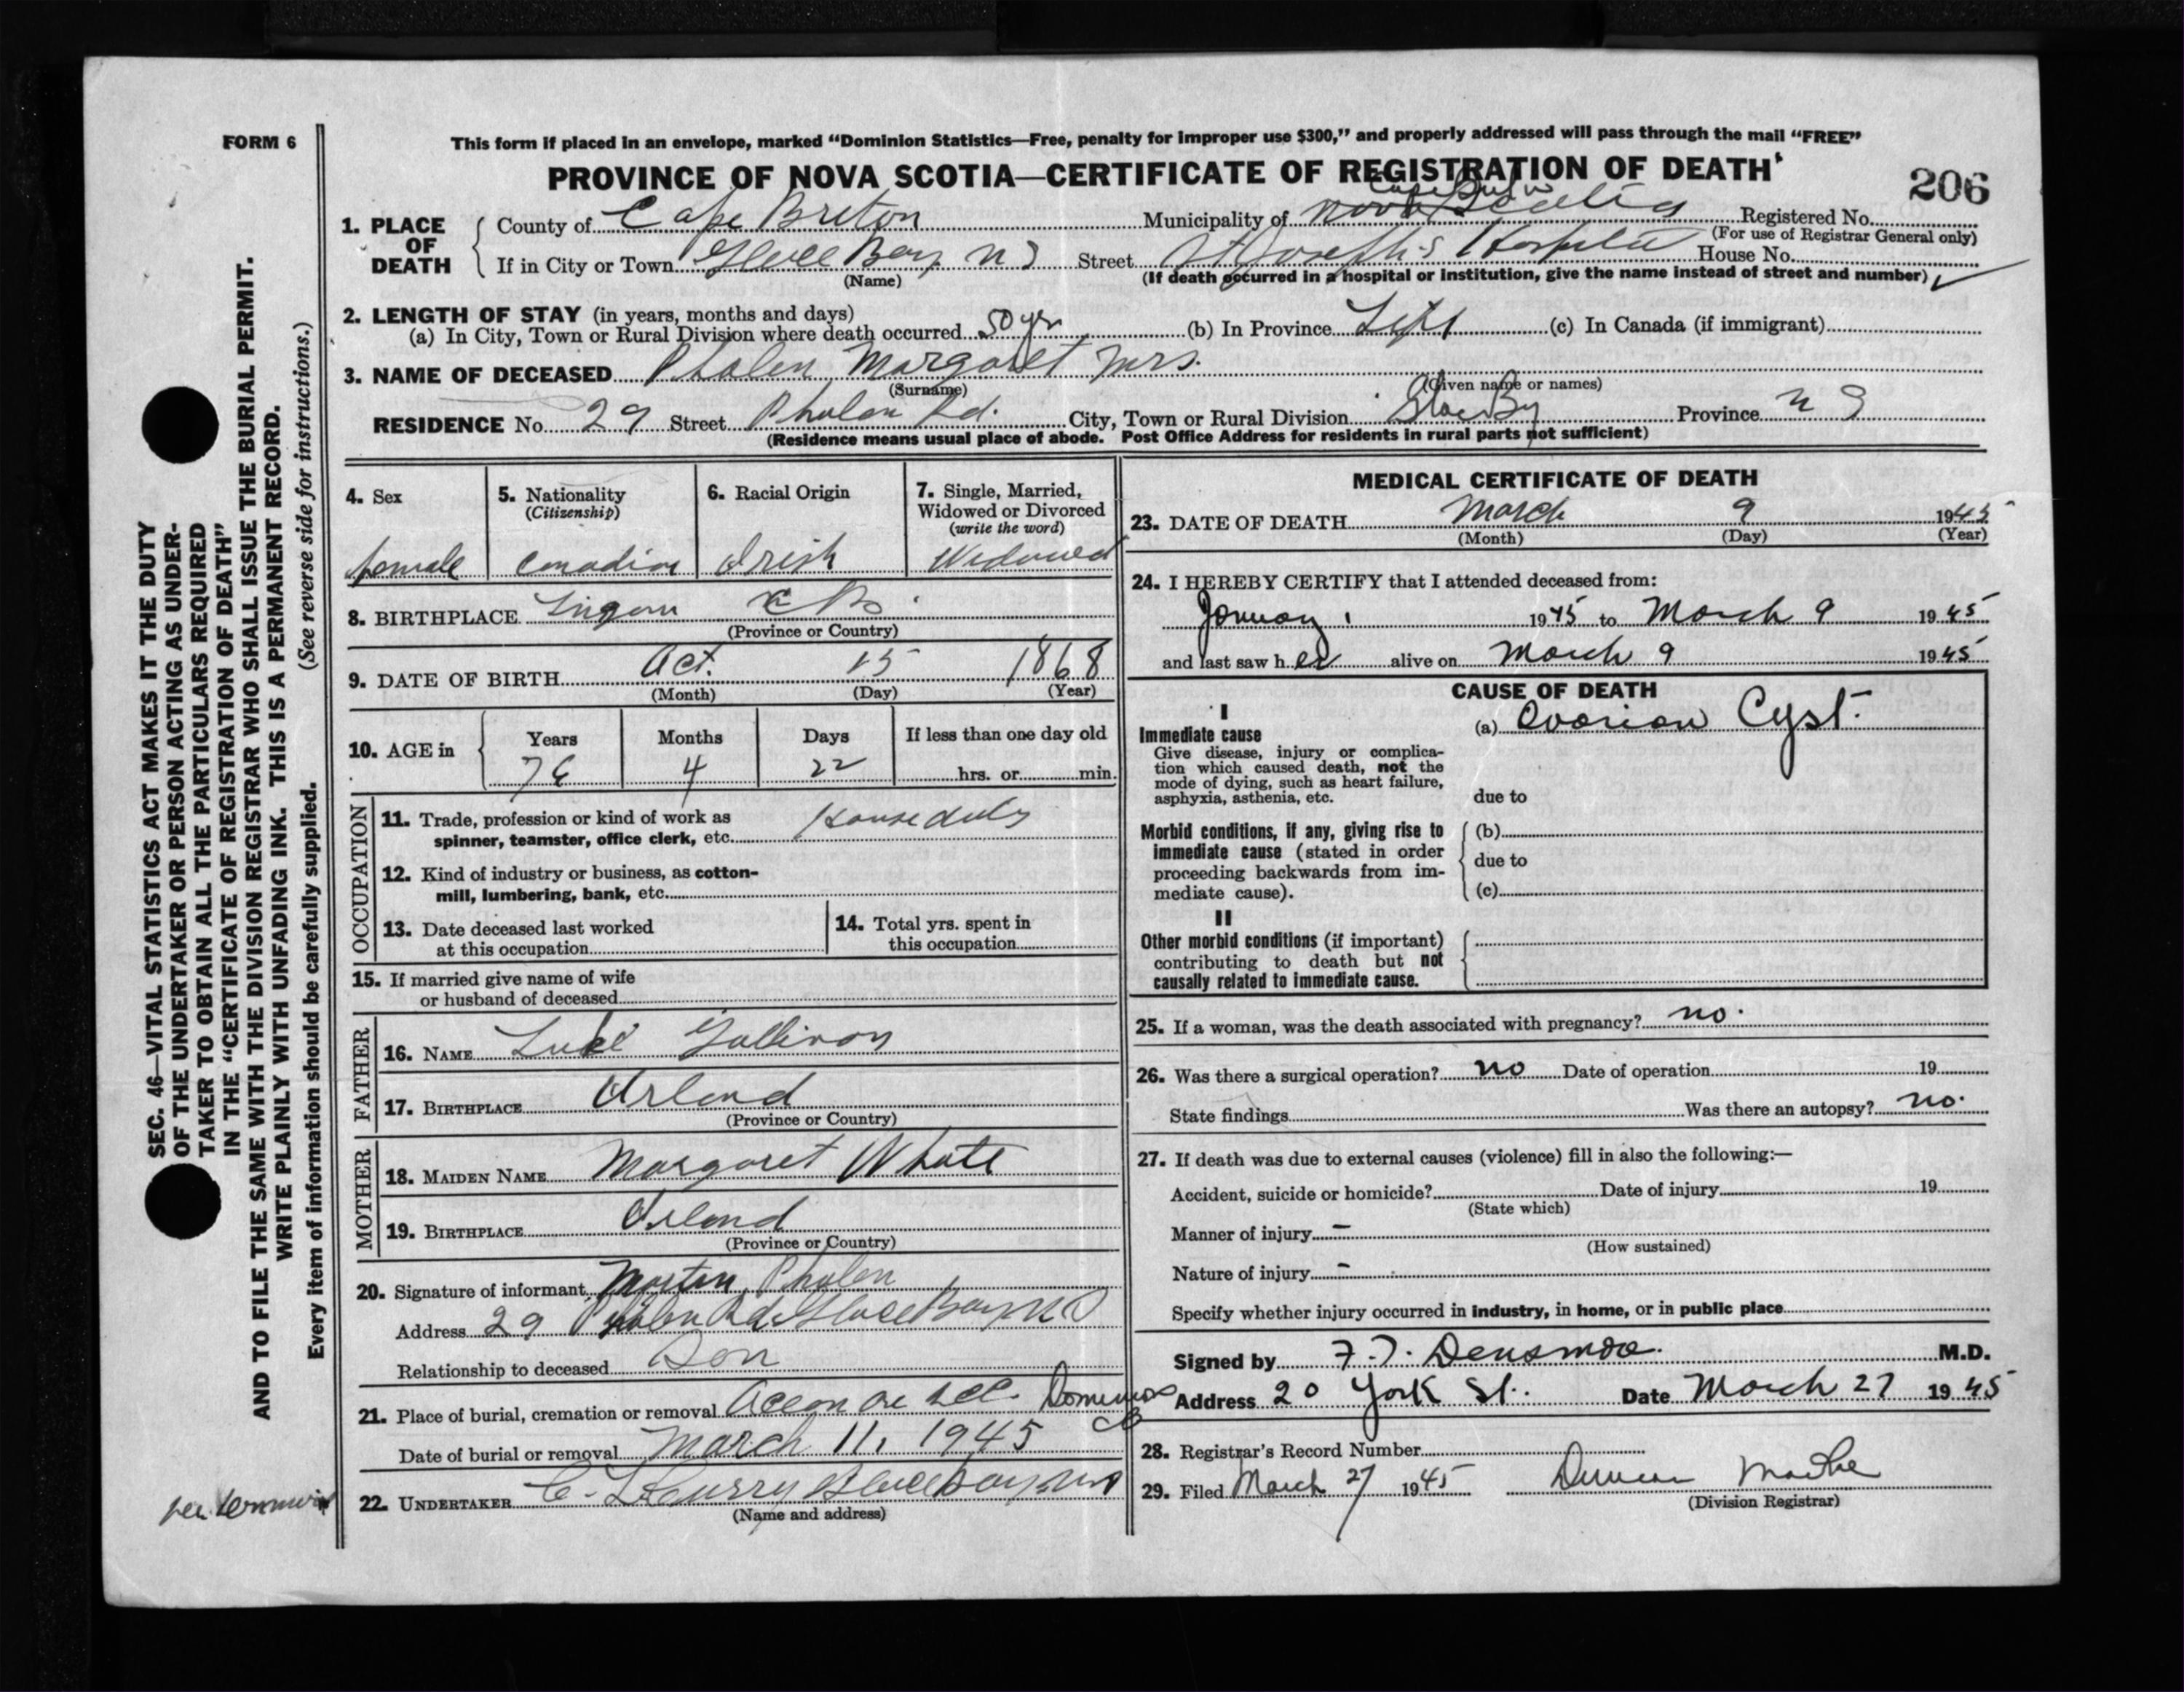 FORM 6
This form if placed in an envelope, marked “Dominion Statistics—Free, penalty for improper use $300,” and properly addressed will pass through the mail “FREE”
PROVINCE OF NOVA SCOTIA—CERTIFICATE OF REGISTRATION OF DEATH
206
1. PLACE OF DEATH
County of Cape Breton Municipality of Cape Breton Nova Scotia Registered No.
(For use of Registrar General only)
If in City or Town Glace Bay N S Street St Joseph's Hospital House No.
(Name) (If death occurred in a hospital or institution, give the name instead of street and number)
2. LENGTH OF STAY (in years, months and days)
(a) In City, Town or Rural Division where death occurred 50 yrs (b) In Province Life (c) In Canada (if immigrant)
3. NAME OF DECEASED Phalen Margaret Mrs.
(Surname) (Given name or names)
RESIDENCE No. 29 Street Phalen Rd. City, Town or Rural Division Glace Bay Province N S
(Residence means usual place of abode. Post Office Address for residents in rural parts not sufficient)
4. Sex
female
5. Nationality
(Citizenship)
Canadian
6. Racial Origin
Irish
7. Single, Married, Widowed or Divorced
(write the word)
Widowed
8. BIRTHPLACE Lingan C B.
(Province or Country)
9. DATE OF BIRTH Oct. 15 1868
(Month) (Day) (Year)
10. AGE in
Years Months Days If less than one day old
76 4 22 hrs. or min.
OCCUPATION
11. Trade, profession or kind of work as
spinner, teamster, office clerk, etc. House duty
12. Kind of industry or business, as cotton-
mill, lumbering, bank, etc.
13. Date deceased last worked
at this occupation
14. Total yrs. spent in
this occupation
15. If married give name of wife
or husband of deceased
FATHER
16. NAME Luke Sullivan
17. BIRTHPLACE Irland
(Province or Country)
MOTHER
18. MAIDEN NAME Margaret White
19. BIRTHPLACE Irland
(Province or Country)
20. Signature of informant Martin Phalen
Address 29 Phalen Rd Glace Bay N S
Relationship to deceased Son
21. Place of burial, cremation or removal Dominion CB
Date of burial or removal March 11, 1945
22. UNDERTAKER Curry Glace Bay NS
(Name and address)
MEDICAL CERTIFICATE OF DEATH
23. DATE OF DEATH March 9 1945
(Month) (Day) (Year)
24. I HEREBY CERTIFY that I attended deceased from:
January 1 1945 to March 9 1945
and last saw her alive on March 9 1945
CAUSE OF DEATH
I
Immediate cause
Give disease, injury or complica-
tion which caused death, not the
mode of dying, such as heart failure,
asphyxia, asthenia, etc.
(a) Ovarian Cyst.
due to
Morbid conditions, if any, giving rise to
immediate cause (stated in order
proceeding backwards from im-
mediate cause).
(b)
due to
(c)
II
Other morbid conditions (if important)
contributing to death but not
causally related to immediate cause.
25. If a woman, was the death associated with pregnancy? no.
26. Was there a surgical operation? no Date of operation 19
State findings Was there an autopsy? no.
27. If death was due to external causes (violence) fill in also the following:—
Accident, suicide or homicide? Date of injury 19
(State which)
Manner of injury –
(How sustained)
Nature of injury –
Specify whether injury occurred in industry, in home, or in public place
Signed by M.D.
Address 20 York St. Date March 27 1945
28. Registrar's Record Number
29. Filed March 27 1945 Duncan
(Division Registrar)
SEC. 46—VITAL STATISTICS ACT MAKES IT THE DUTY
OF THE UNDERTAKER OR PERSON ACTING AS UNDER-
TAKER TO OBTAIN ALL THE PARTICULARS REQUIRED
IN THE “CERTIFICATE OF REGISTRATION OF DEATH”
AND TO FILE THE SAME WITH THE DIVISION REGISTRAR WHO SHALL ISSUE THE BURIAL PERMIT.
WRITE PLAINLY WITH UNFADING INK. THIS IS A PERMANENT RECORD.
Every item of information should be carefully supplied. (See reverse side for instructions.)